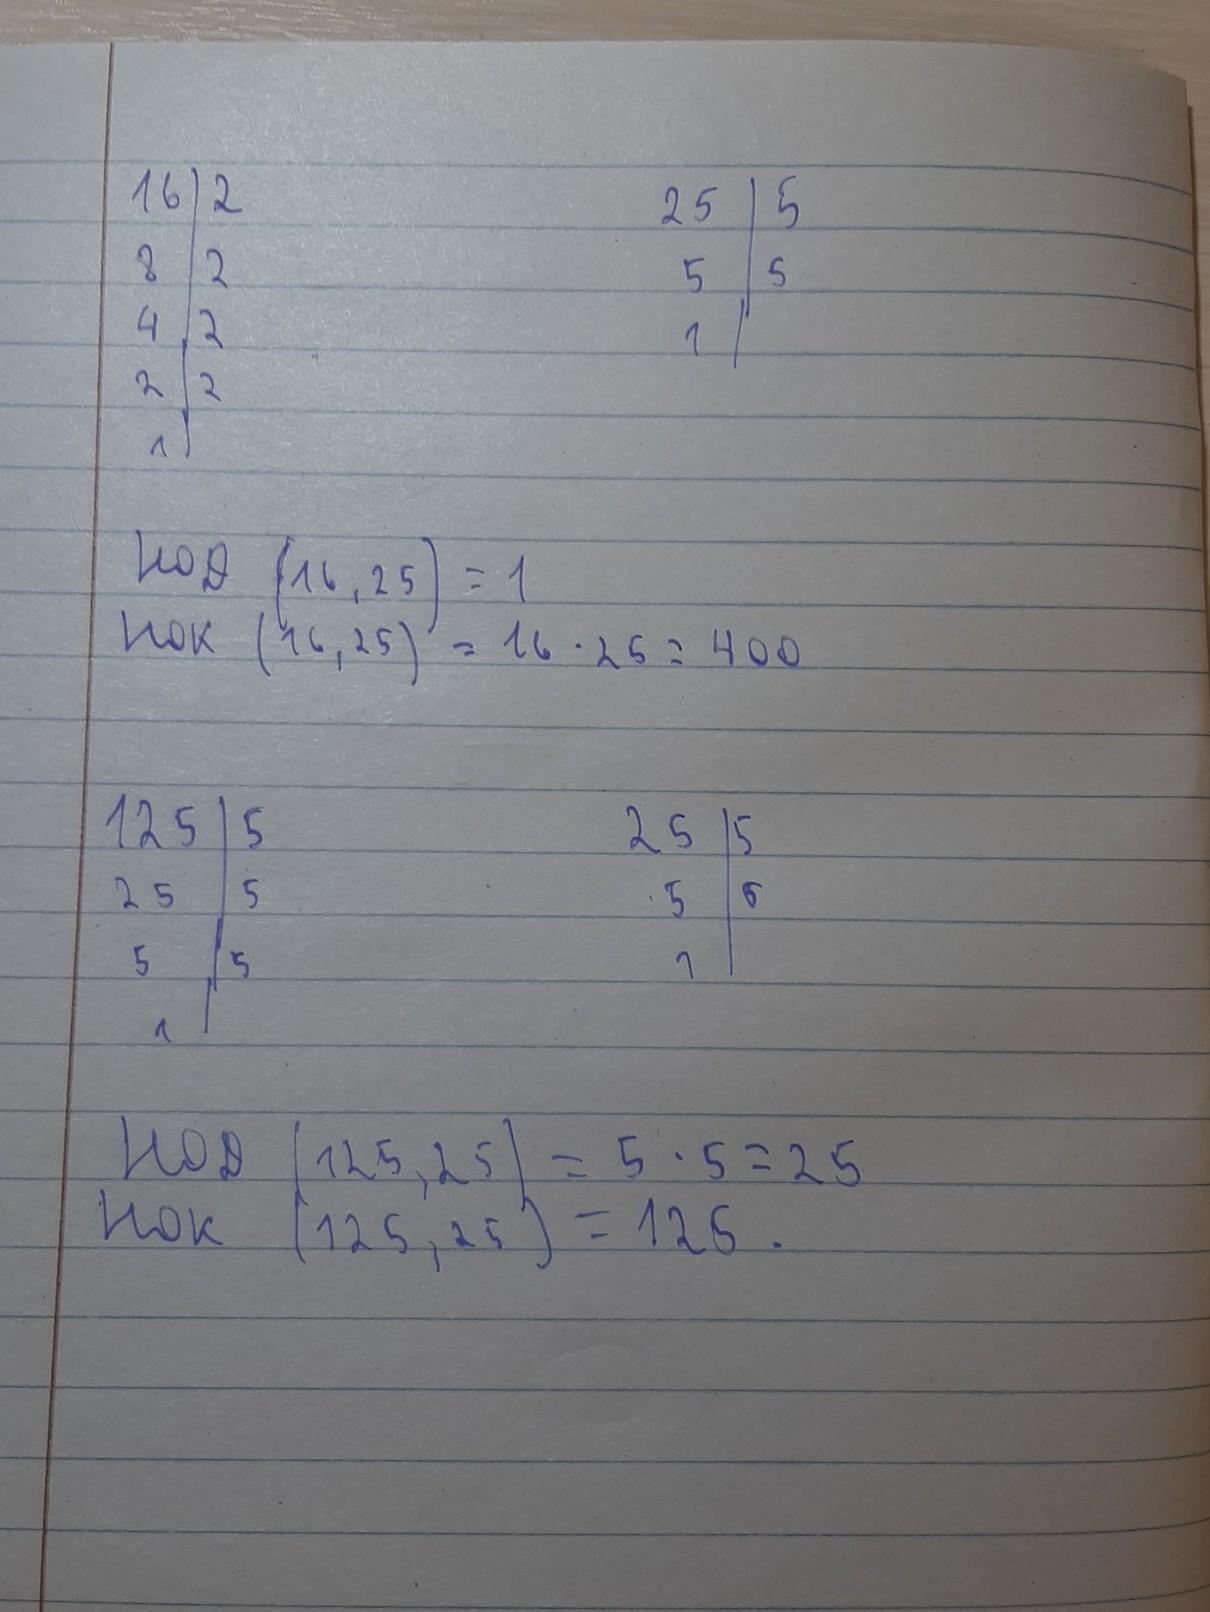 16 | 2
8 | 2
4 | 2
2 | 2
1 |
25 | 5
5 | 5
1 |
НОД (16,25) = 1
НОК (16,25) = 16 · 25 = 400
125 | 5
25 | 5
5 | 5
1 |
25 | 5
5 | 5
1 |
НОД (125,25) = 5 · 5 = 25
НОК (125,25) = 125.